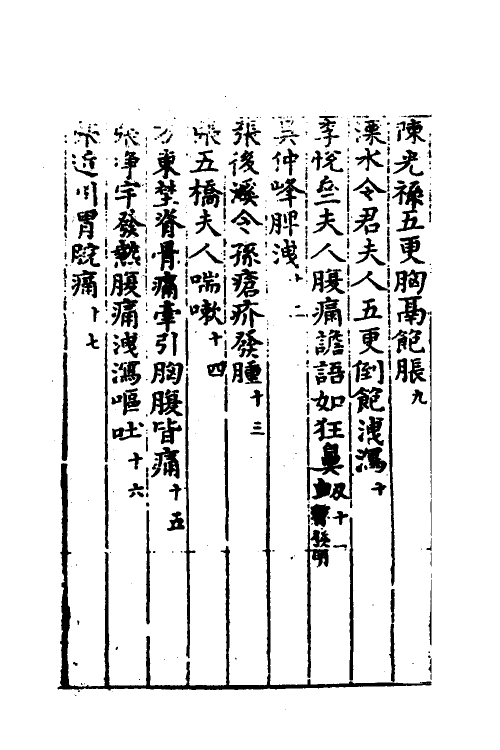 陳光祿五更胸膈飽脹九
溧水令君夫人五更倒飽洩瀉十
李悅夫人腹痛譫語如狂鼻衄十一
吳仲峰脾洩十二
張後溪令孫瘡疥發腫十三
張五橋夫人喘嗽十四
方東埜脊骨痛牽引胸腹皆痛十五
張淨宇發熱腹痛洩瀉嘔吐十六
近川胃脘痛十七